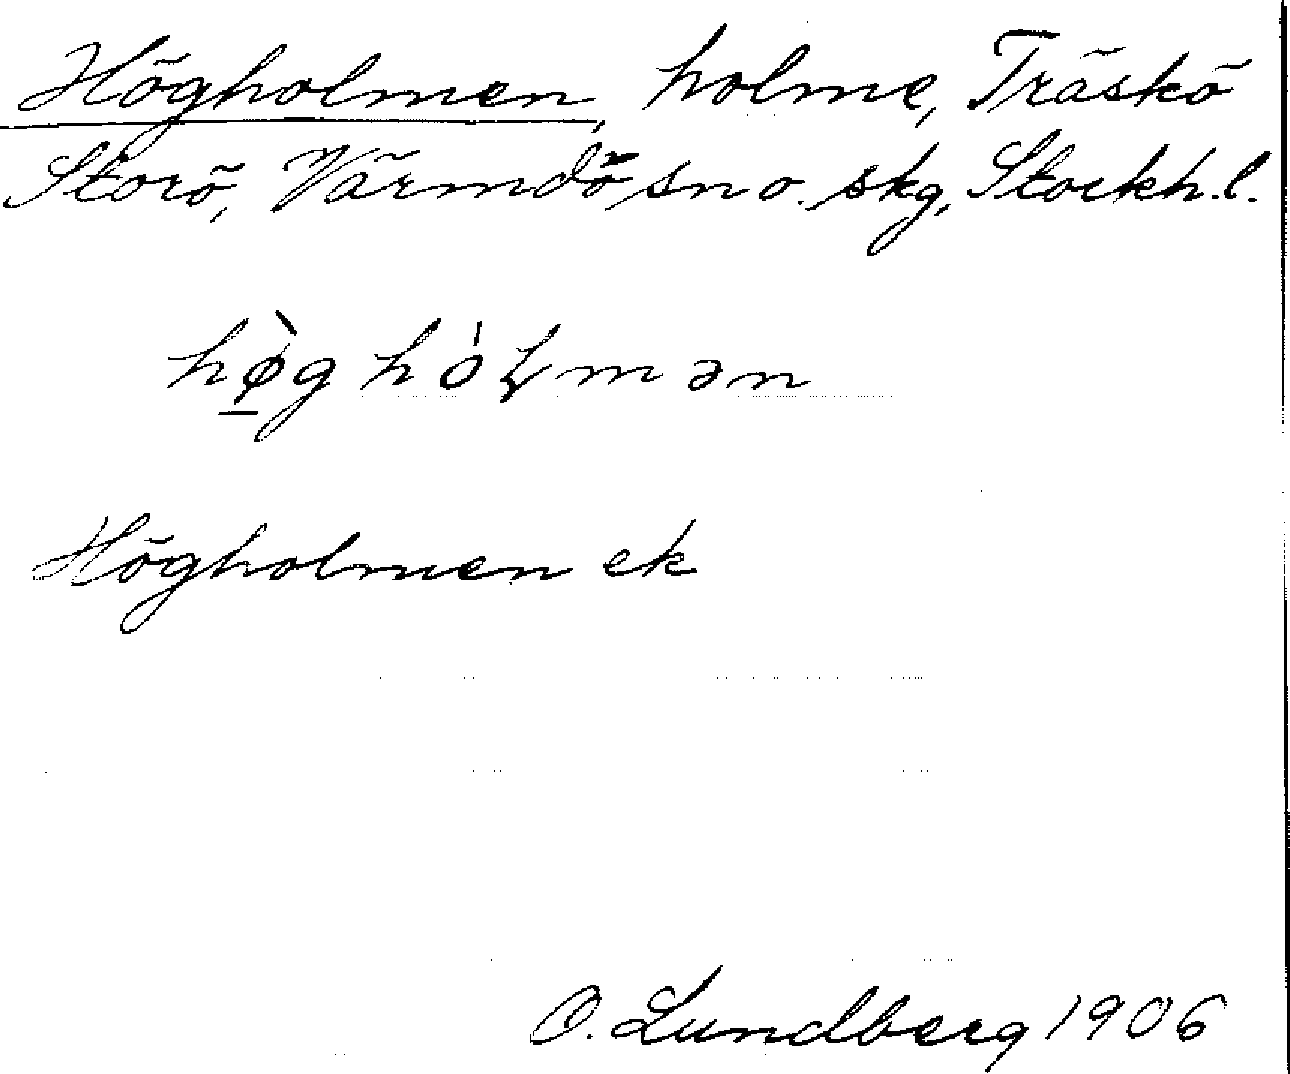 Högholmen, holme, Träskö
Storö, Värmdö sn o. skg, Stockh. l.
hø̀g hóɫmən
Högholmen ek
O. Lundberg 1906